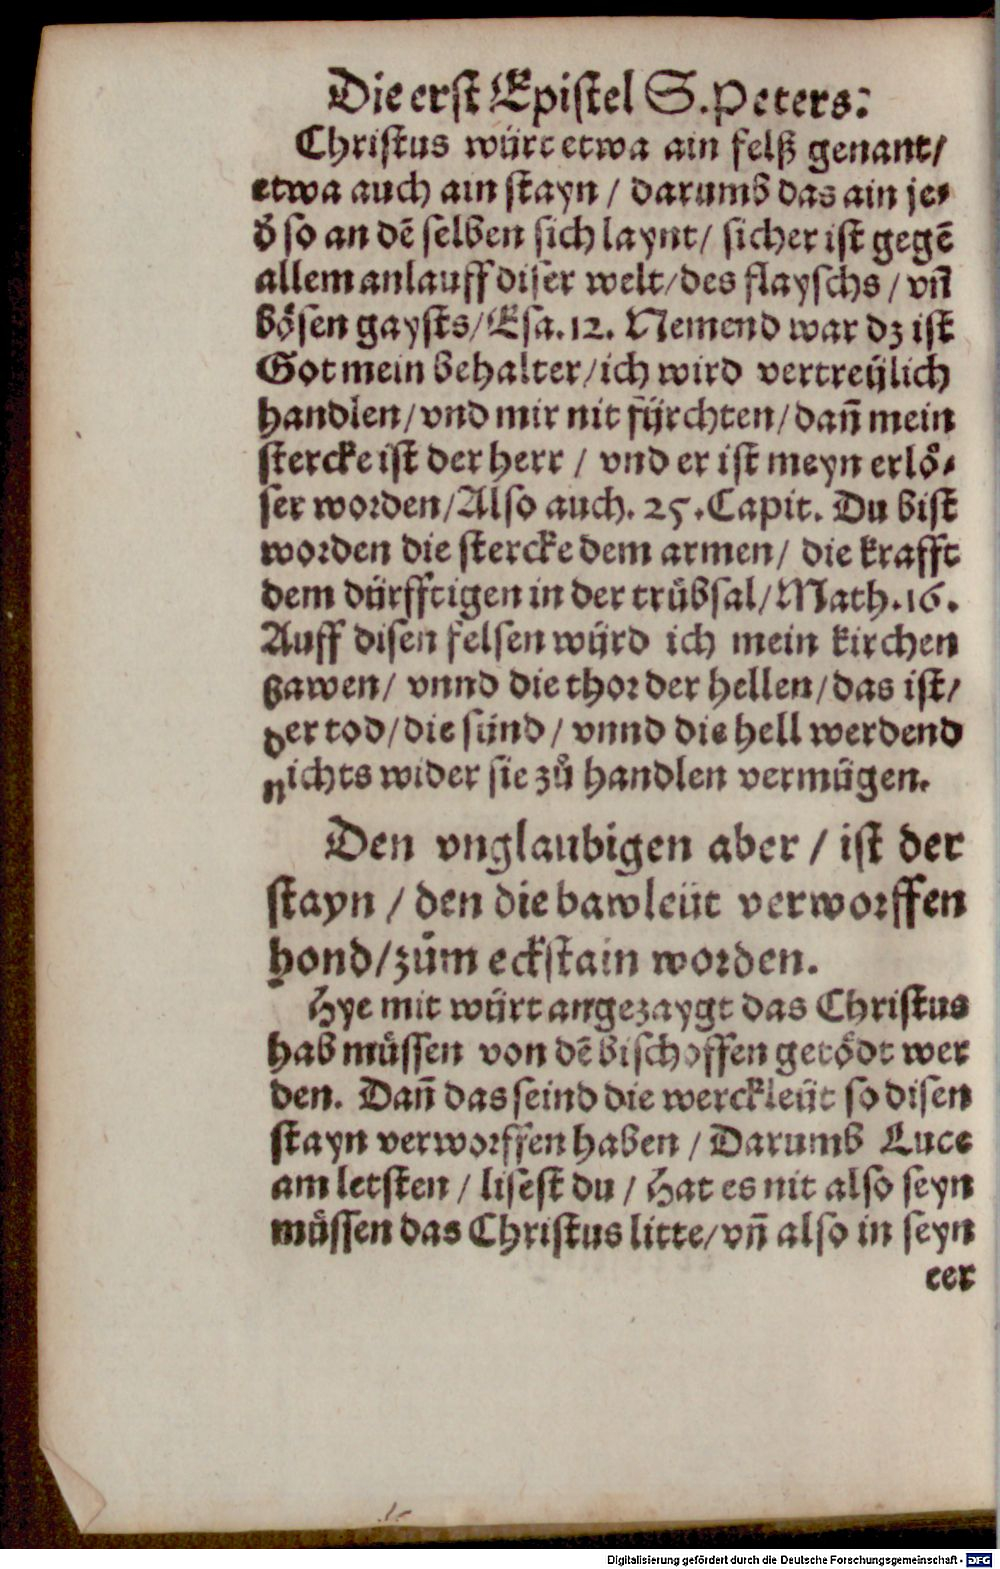 Die erst Epistel S. Peters:
Christus würt etwa ain felß genant/
etwa auch ain stayn / darumb das ain je⸗
d̕ so an dē selben sich laynt/ sicher ist gegē
allem anlauff diser welt/des flayschs / vñ
bösen gaysts/Esa.12. Nemend war dz ist
Got mein behalter/ich wird vertreülich
handlen/vnd mir nit fürchten/dañ mein
stercke ist der herr / vnd er ist meyn erlö⸗
ser worden/Also auch. 25.Capit. Du bist
worden die stercke dem armen/ die krafft
dem dürfftigen in der trübsal/Math.16.
Auff disen felsen würd ich mein kirchen
bawen/ vnnd die thor der hellen/das ist/
der tod/die sünd/ vnnd die hell werdend
nichts wider sie zů handlen vermügen.
Den vnglaubigen aber / ist der
stayn / den die bawleüt verworffen
hond/zům eckstain worden.
Hye mit würt angezaygt das Christus
hab müssen von dē bischoffen getödt wer
den. Dañ das seind die werckleüt so disen
stayn verworffen haben / Darumb Luce
am letsten / lisest du / Hat es nit also seyn
müssen das Christus litte/vñ also in seyn
cer
Digitalisierung gefördert durch die Deutsche Forschungsgemeinschaft - DFG